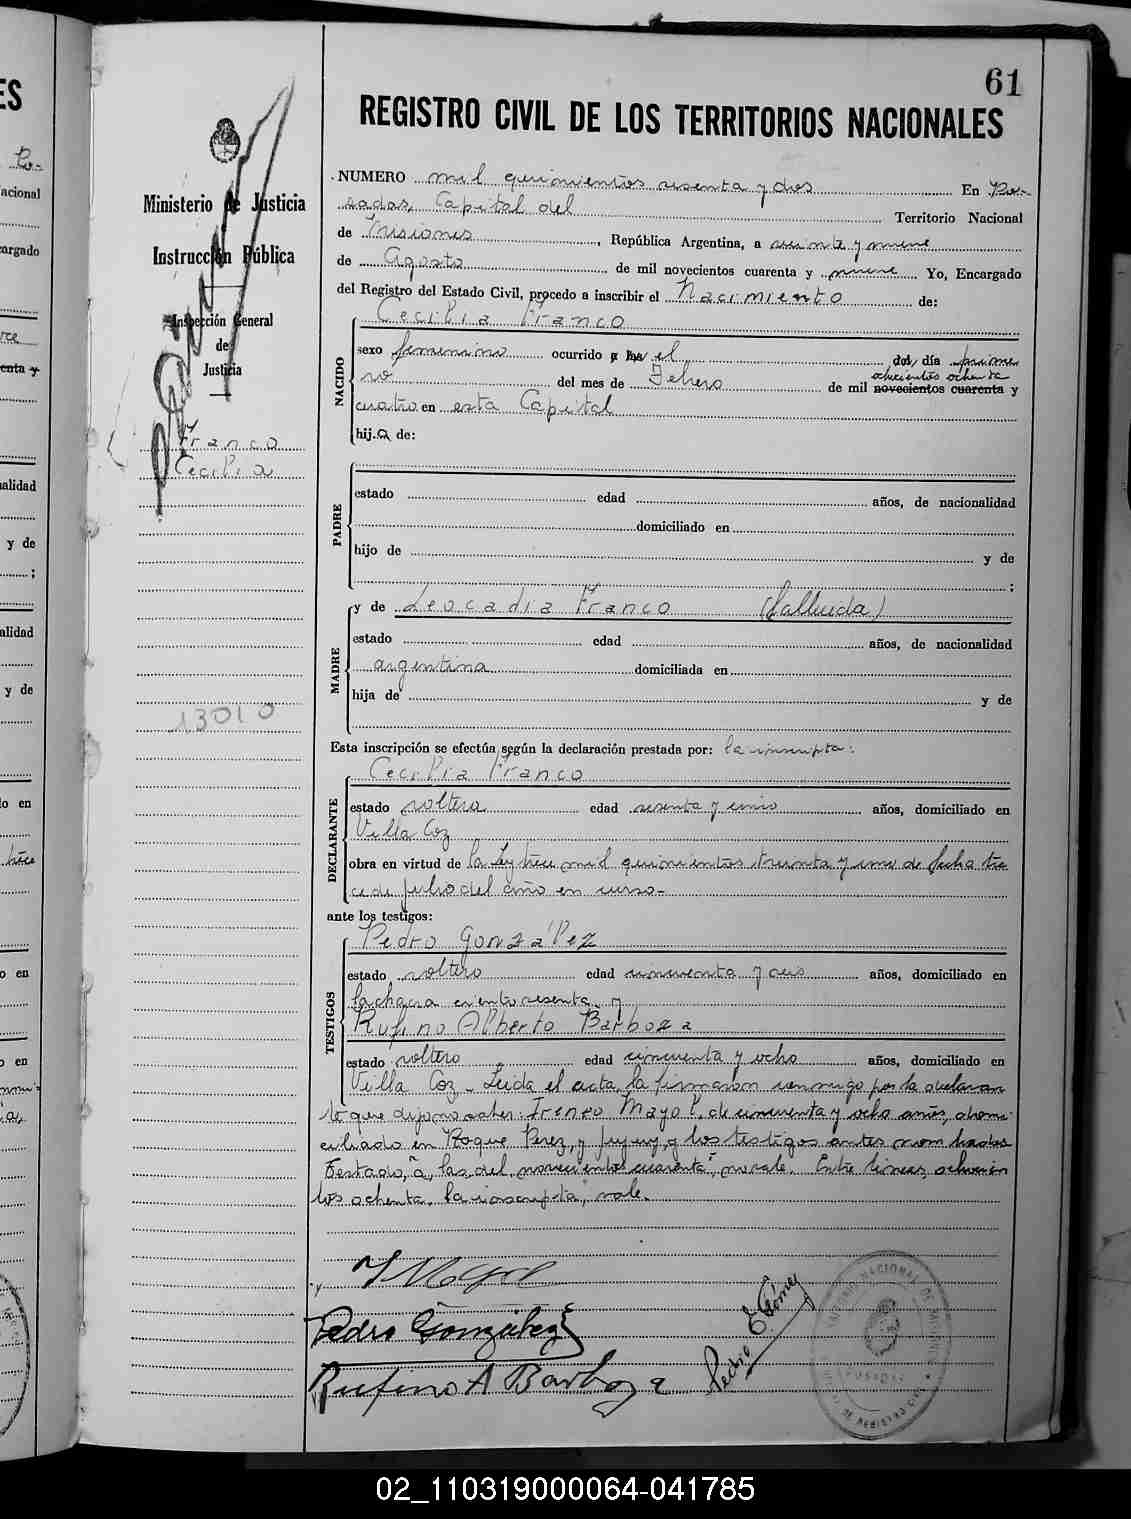 61
REGISTRO CIVIL DE LOS TERRITORIOS NACIONALES
Ministerio de Justicia
Instrucción Pública
Inspección General
de
Justicia
Franco
Cecilia
13010
NUMERO mil quinientos sesenta y dos En Po-
sadas, Capital del Territorio Nacional
de Misiones, República Argentina, a veinte y nueve
de Agosto de mil novecientos cuarenta y nueve Yo, Encargado
del Registro del Estado Civil, procedo a inscribir el Nacimiento de:
Cecilia Franco
NACIDO
sexo femenino ocurrido a las el del día prime
ochocientos ochenta
ro del mes de Febrero de mil novecientos cuarenta y
cuatro en esta Capital
hija de:
PADRE
estado edad años, de nacionalidad
domiciliado en
hijo de y de
;
MADRE
y de Leocadia Franco (fallecida)
estado edad años, de nacionalidad
argentina domiciliada en
hija de y de
Esta inscripción se efectúa según la declaración prestada por: la inscripta:
DECLARANTE
Cecilia Franco
estado soltera edad sesenta y cinco años, domiciliado en
Villa Coz
obra en virtud de la Ley trece mil quinientos treinta y uno de fecha tre
ce de julio del año en curso.-
ante los testigos:
TESTIGOS
Pedro González
estado soltero edad cincuenta y seis años, domiciliado en
la chacra ciento sesenta y
Rufino Alberto Barboza
estado soltero edad cincuenta y ocho años, domiciliado en
Villa Coz - Leida el acta, la firmaron conmigo por la declaran
te que dijo no saber Ireneo Mayol, de cincuenta y ocho años, domi-
ciliado en Roque Perez y Jujuy, y los testigos antes nombrados
Testado, "a, las, del, novecientos cuarenta", no vale. Entre lineas, ochocien
tos ochenta, la inscripta, vale.
I Mayol
Pedro González
Rufino A Barboza
Pedro E Gómez
02_110319000064-041785